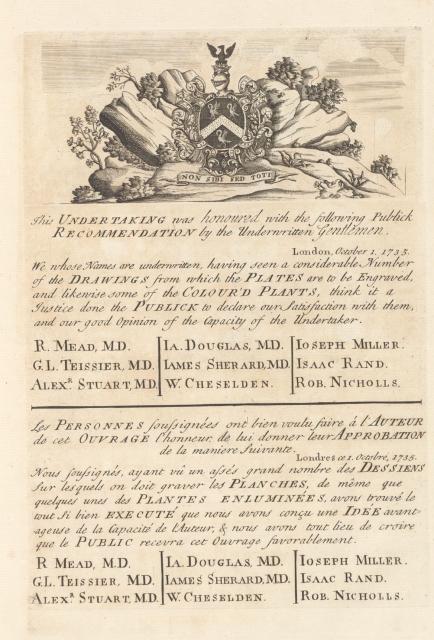 NON SIBI SED TOTI
This UNDERTAKING was honoured with the following Publick
RECOMMENDATION by the Underwritten Gentlemen.
London, October 1. 1735.
We whose Names are underwritten, having seen a considerable Number
of the DRAWINGS from which the PLATES are to be Engraved,
and likewise some of the COLOUR'D PLANTS, think it a
Justice done the PUBLICK to declare our Satisfaction with them,
and our good Opinion of the Capacity of the Undertaker.
R. MEAD, M.D. IA. DOUGLAS, M.D. IOSEPH MILLER.
G.L. TEISSIER, M.D. IAMES SHERARD, M.D. ISAAC RAND.
ALEXR. STUART, M.D. W. CHESELDEN. ROB. NICHOLLS.
Les PERSONNES soussignées ont bien voulu faire à l'AUTEUR
de cet OUVRAGE l'honneur de lui donner leur APPROBATION
de la maniere suivante.
Londres ce 1. Octobre, 1735.
Nous soussignés, ayant vû un assés grand nombre des DESSIENS
sur lesquels on doit graver les PLANCHES, de même que
quelques unes des PLANTES ENLUMINÉES, avons trouvé le
tout si bien EXECUTÉ que nous avons conçu une IDÉE avant-
ageuse de la Capacité de l'Auteur, & nous avons tout lieu de croire
que le PUBLIC recevra cet Ouvrage favorablement.
R MEAD, M.D. IA. DOUGLAS, M.D. IOSEPH MILLER.
G.L. TEISSIER, M.D. IAMES SHERARD, M.D. ISAAC RAND.
ALEXR. STUART, M.D. W. CHESELDEN. ROB. NICHOLLS.